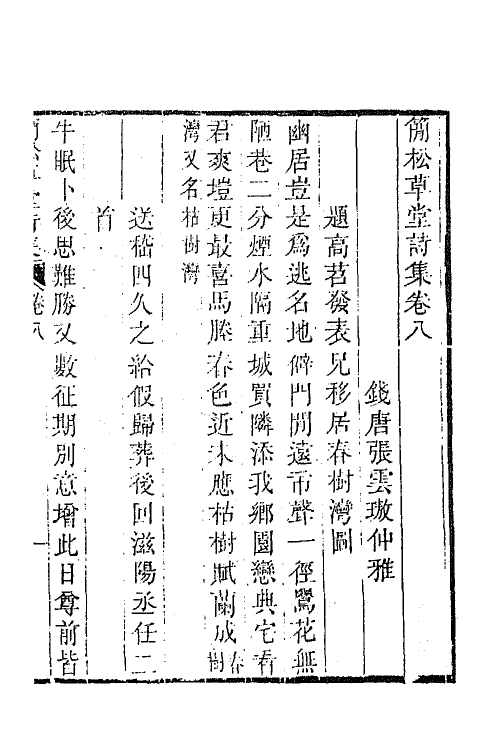 簡松草堂詩集卷八
錢唐張雲璈仲雅
題高苕發表兄移居春樹灣圖
幽居豈是爲逃名地僻門閒遠市聲一徑鶯花無
陋巷二分煙水隔重城買隣添我鄉園戀典宅看
君爽塏更最喜馬塍春色近未應枯樹賦蘭成春樹
灣又名枯樹灣
送嵇四久之給假歸葬後回滋陽丞任二
首
牛眠卜後思難勝又數征期別意增此日尊前皆
卷八
一